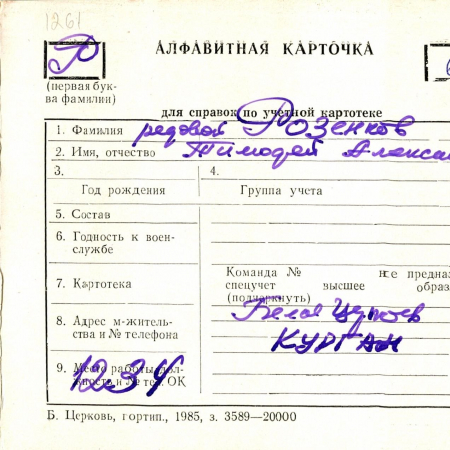 1261
АЛФАВИТНАЯ КАРТОЧКА
Р
(первая бук-
ва фамилии)
для справок по учетной картотеке
1. Фамилия рядовой Розенков
2. Имя, отчество Тимофей Алекса
3.
4.
Год рождения
Группа учета
5. Состав
6. Годность к воен-
службе
7. Картотека
Команда № не предназ
спецучет высшее образ
(подчеркнуть)
8. Адрес м-жительс-
тва и № телефона
КУРГАН
9. Место работы, дол-
жность и № тел. ОК
Б. Церковь, гортип., 1985, з. 3589—20000